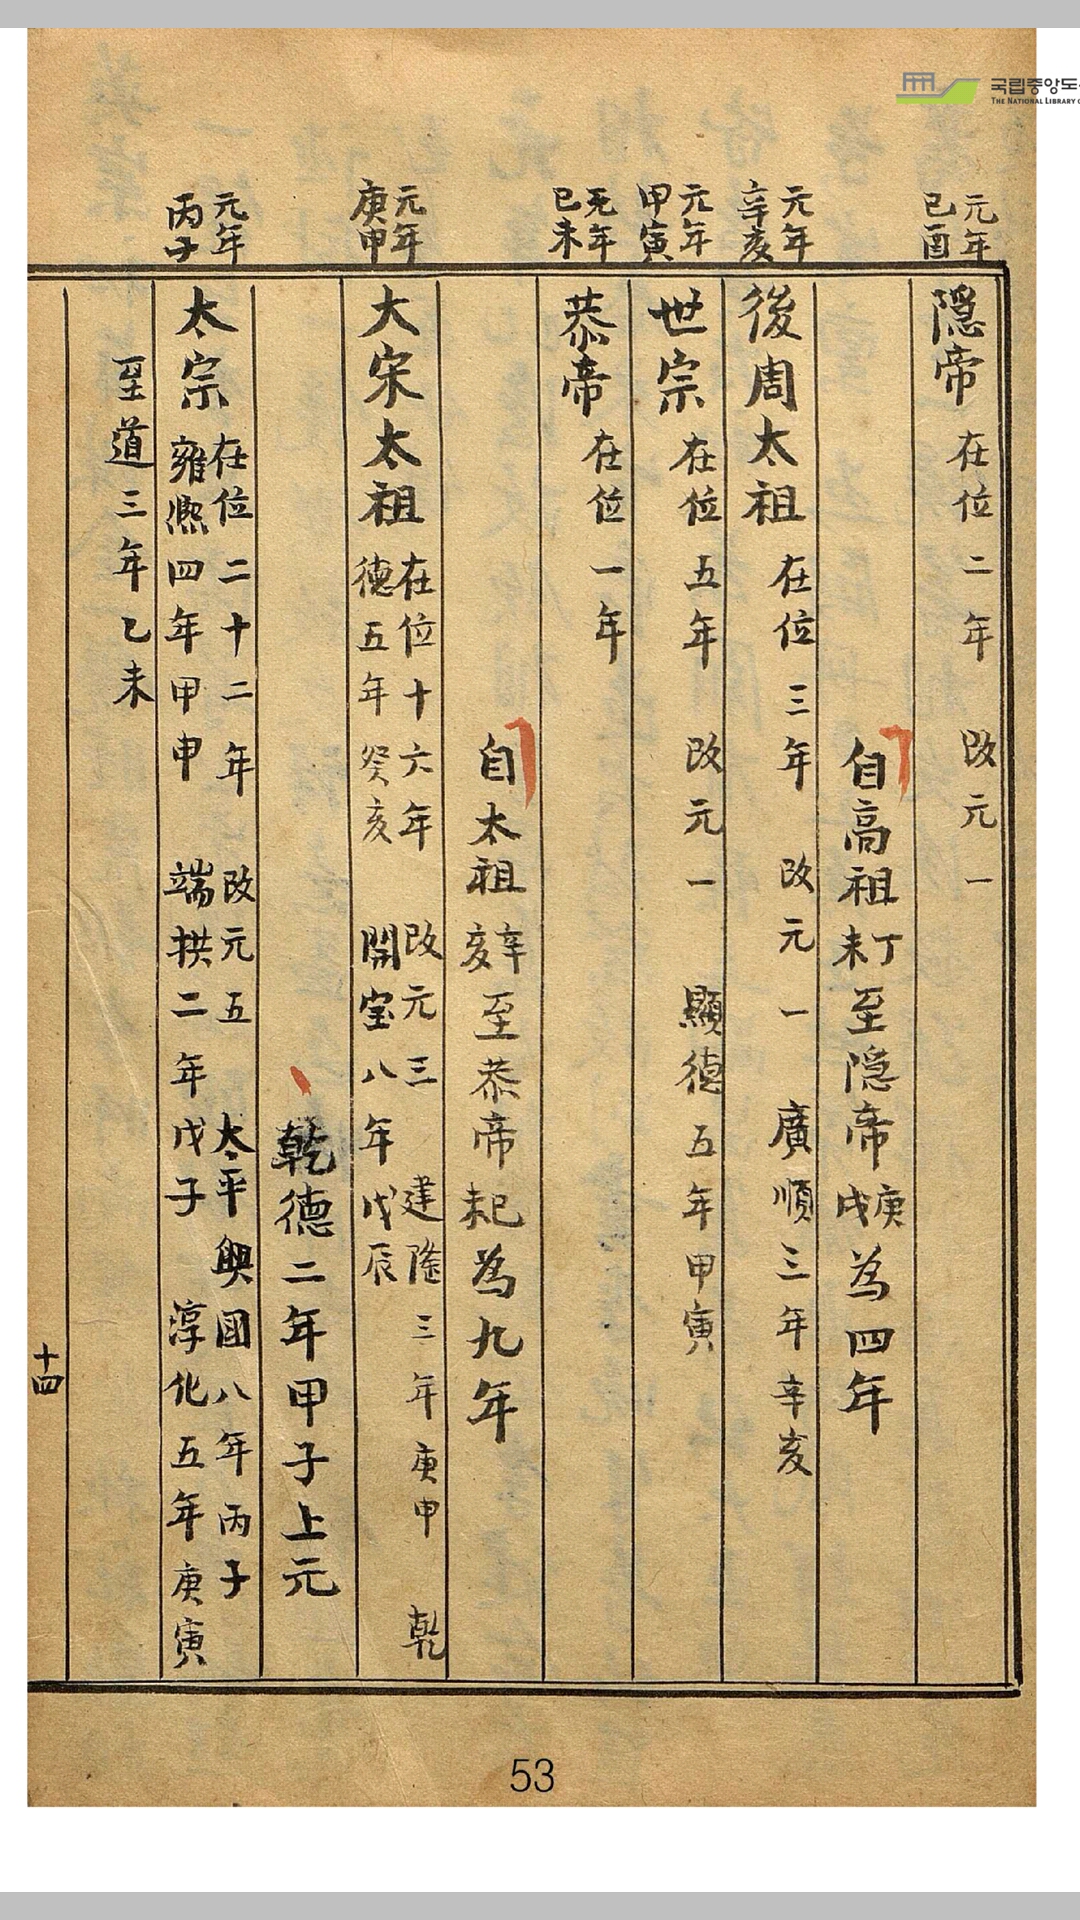 국립중앙도
THE NATIONAL LIBRARY O
元年
己酉
隱帝 在位二年 改元一
自高祖丁未至隱帝庚戌為四年
元年
辛亥
後周太祖 在位三年 改元一 廣順三年辛亥
元年
甲寅
世宗 在位五年 改元一 顯德五年甲寅
元年
己未
恭帝 在位一年
自太祖辛亥至恭帝己未為九年
元年
庚申
大宋太祖 在位十六年 改元三 建隆三年庚申 乾
德五年癸亥 開宝八年戊辰
乾德二年甲子上元
元年
丙子
太宗 在位二十二年 改元五 太平興國八年丙子
雍熙四年甲申 端拱二年戊子 淳化五年庚寅
至道三年乙未
十四
53